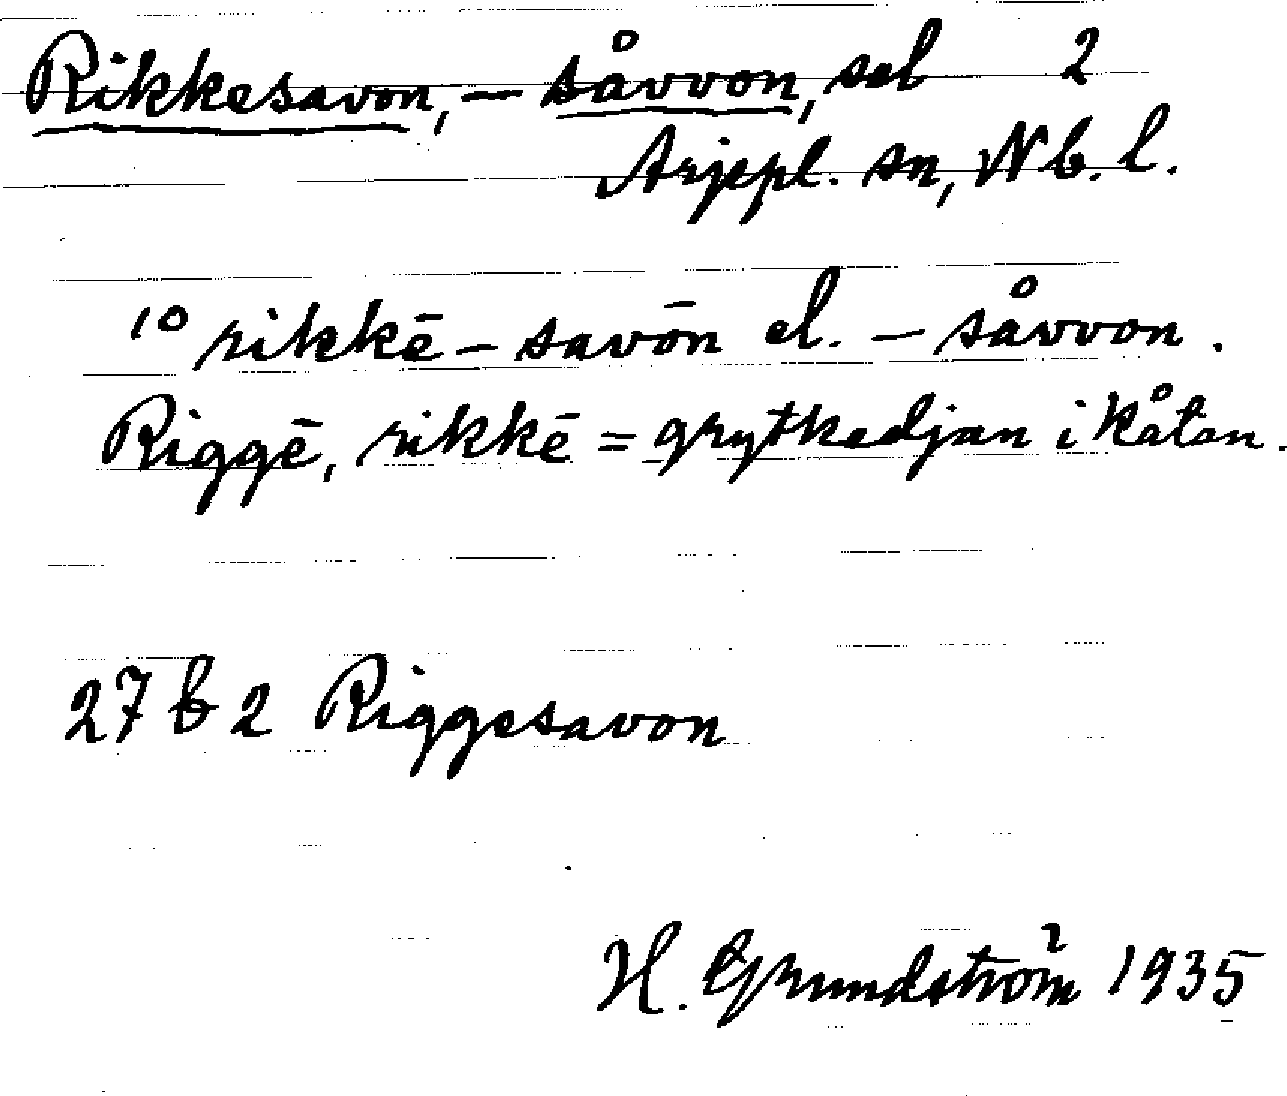 Rikkesavon, – såvvon, sel 2
Arjepl. sn, Nb. l.
1º rikkē – savōn el. – såvvon.
Riggē, rikkē = grytkedjan i kåtan.
27 b 2 Riggesavon
H. Grundström 1935